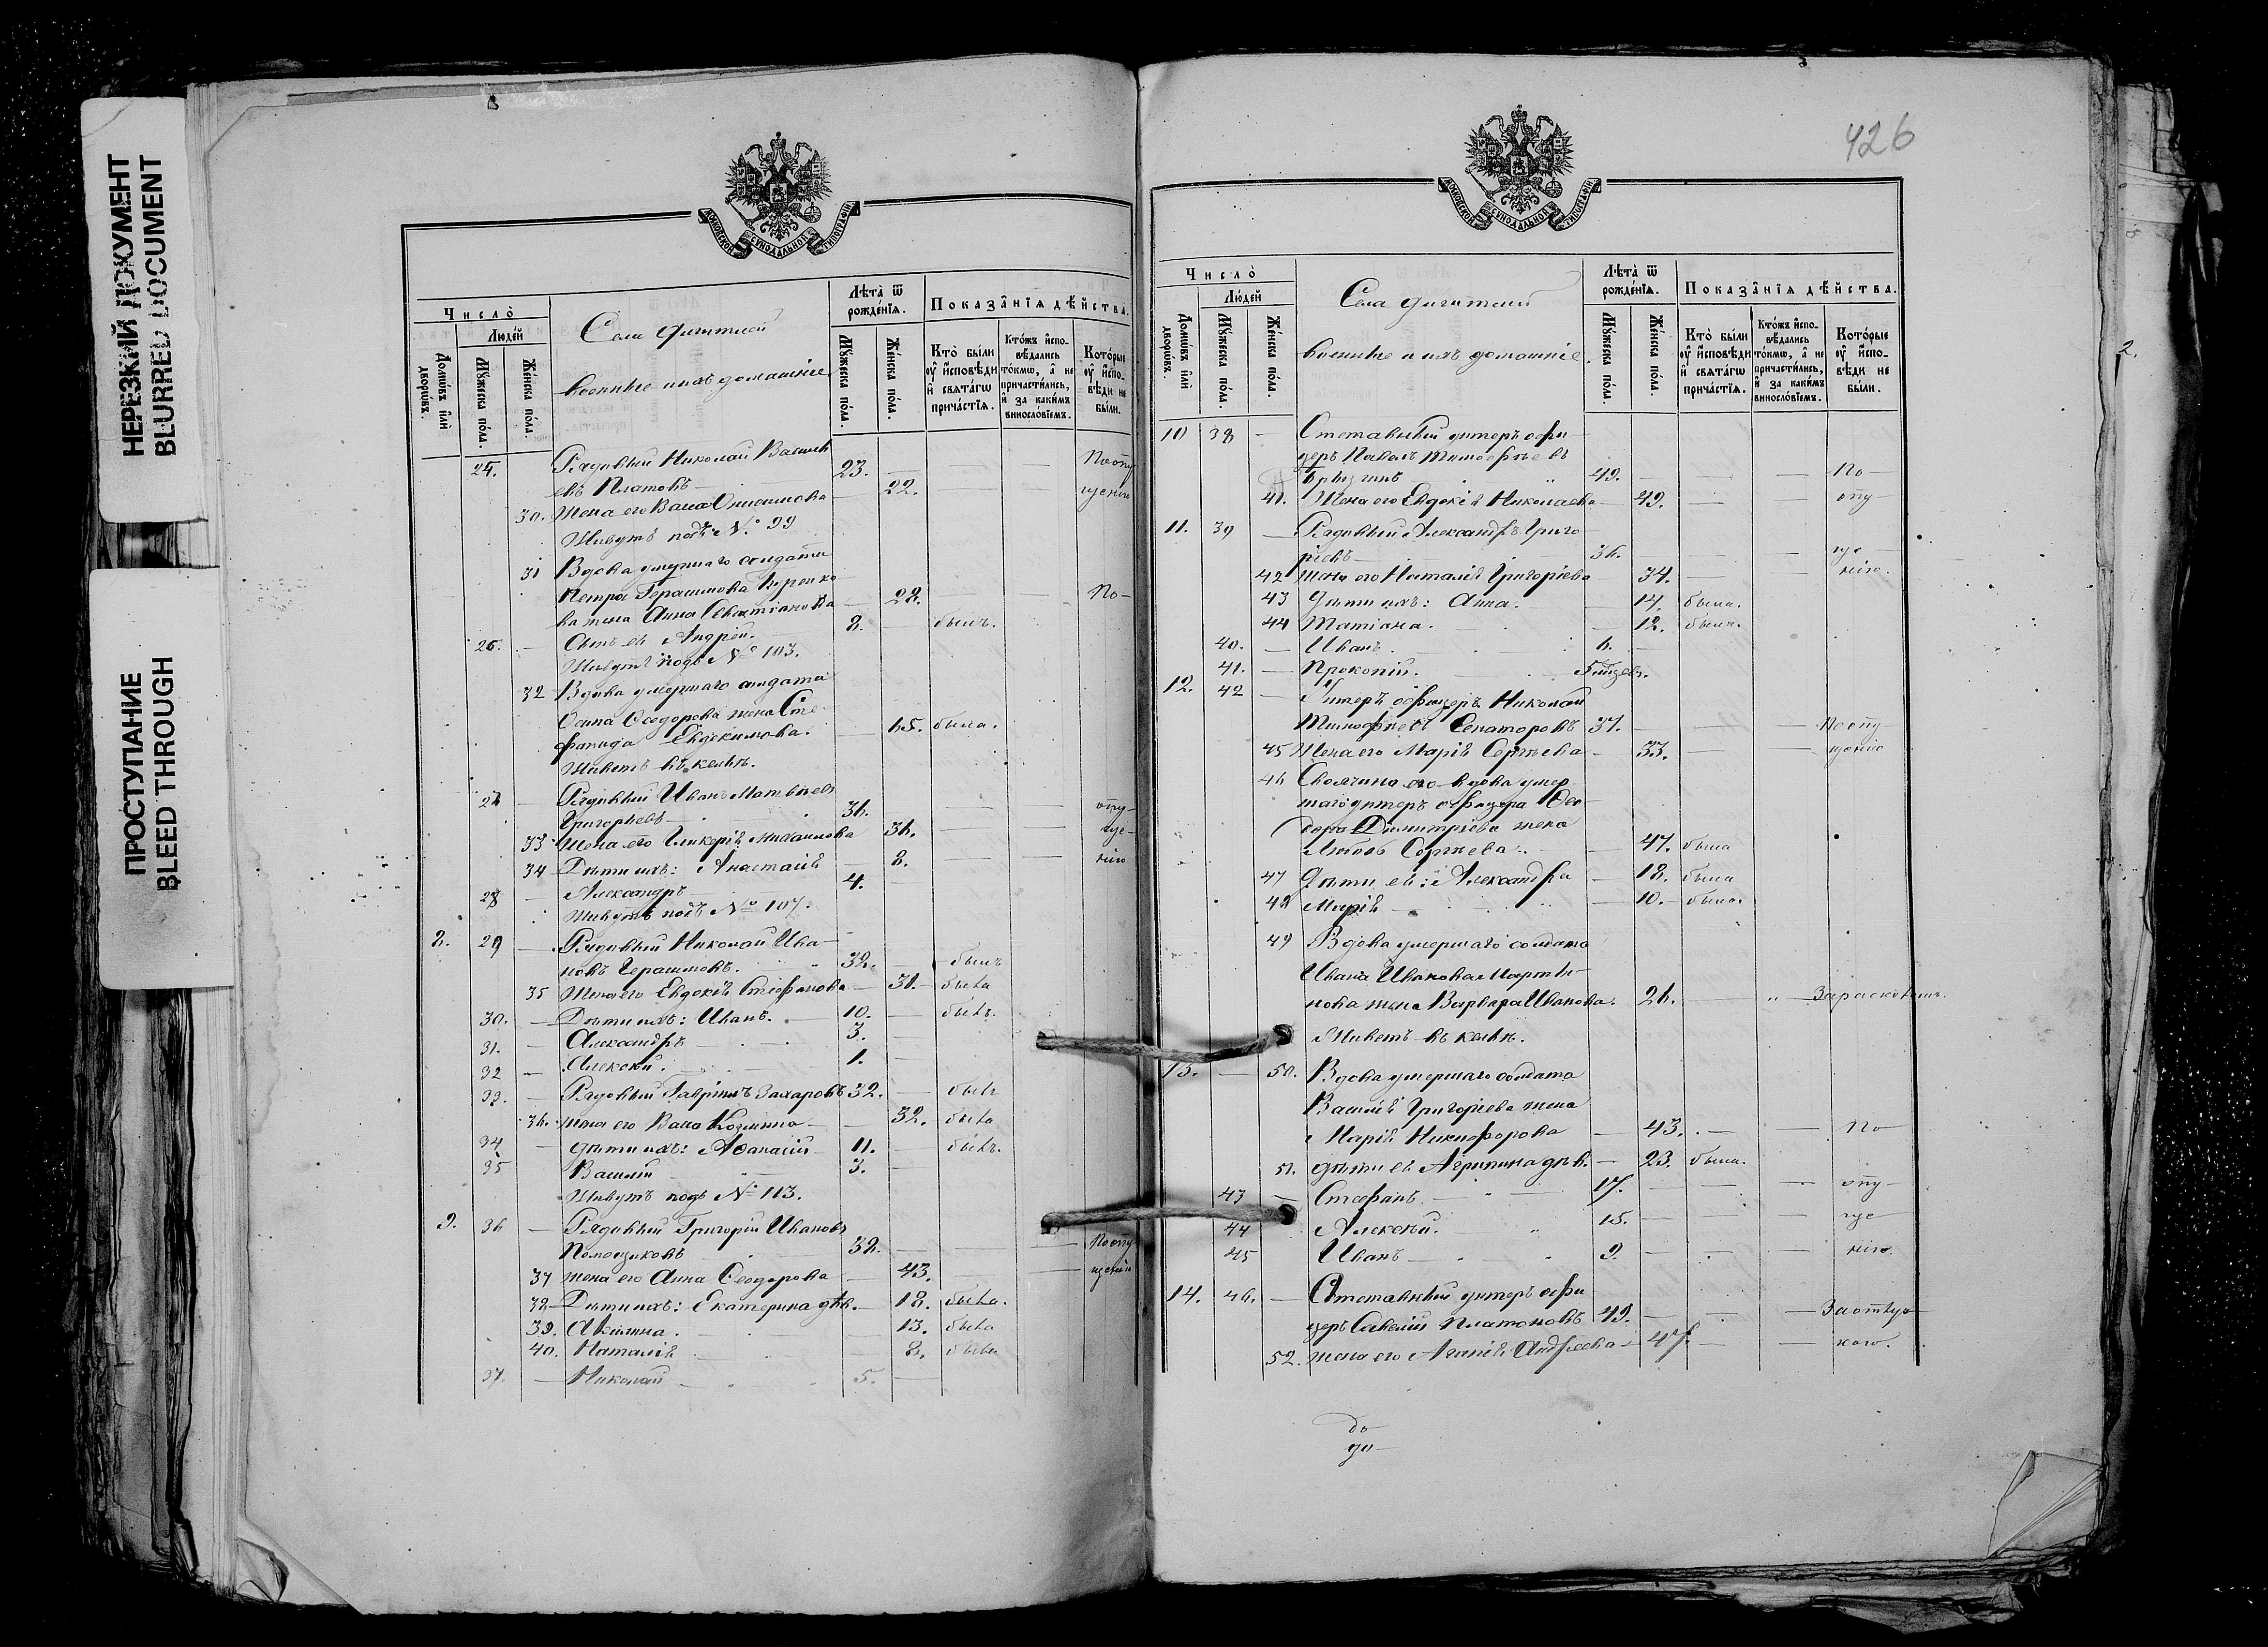 НЕРЕЗКИЙ ДОКУМЕНТ
BLURRED DOCUMENT
ПРОСТУПАНИЕ
BLEED THROUGH
МОСКОВСКОЙ СѴНОДАЛЬНОЙ ТИПОГРАФІИ
Число̀
Люде́й
Домѡ́въ и҆лѝ дворѡ́въ.
Мꙋ́жеска по́ла.
Же́нска по́ла.
Села
военные и ихъ домашніе
Лѣ́та ѿ рожде́нїѧ.
Мꙋ́жеска по́ла.
Же́нска по́ла.
Показа̑нїѧ дѣ́йства.
Кто̀ бы́ли оу҆ и҆сповѣ́ди и҆ свѧта́гѡ прича́стїѧ.
Кто́жъ и҆спо-вѣ́дались то́кмѡ, а҆ не причасти́лись, и҆ за каки́мъ винослові́емъ.
Кото́рые оу҆ и҆спо-вѣ́ди не бы́ли.
25. Рядовый Николай Василь
евъ Платовъ 23. По опу
30. Жена его Васса 22. щенію
Живутъ подъ № 99
31 Вдова умершаго солдата
Петра Герасимова
ва жена Анна 28. По-
26. Сынъ ея Андрей. 8. былъ.
Живутъ подъ № 103.
32 Вдова умершаго солдата
Осипа Ѳеодорова жена Сте
фанида Евдокимова. 65. была.
Живетъ въ кельѣ.
27 Рядовый Иванъ Матвѣевъ
Григорьевъ 36. опу-
33 Жена его Гликерія Михаилова 36. ще-
34 Дѣти ихъ: Анастасія 8. нію
28 Александръ 4.
Живутъ подъ № 107.
8. 29 Рядовый Николай Ива-
новъ Герасимовъ. 32. былъ
35 Жена его Евдокія Стефанова 31. была
30. Дѣти ихъ: Иванъ. 10. былъ.
31. Александръ 3.
32 Алексѣй. 1.
33. Рядовый Гавріилъ Захаровъ 32. былъ
36. жена его Васса Козьмина 32. была
34 дѣти ихъ: Аѳанасій 11. былъ.
35 Василій 3.
Живутъ подъ № 113.
9. 36 Рядовый Григорій Ивановъ
38. По опу
37 жена его Анна Ѳеодорова 43. щенію
38 Дѣти ихъ: Екатерина дѣв. 18. была.
39. Акилина. 13. была
40. Наталія 8. была
37. Николай 5.
426
МОСКОВСКОЙ СѴНОДАЛЬНОЙ ТИПОГРАФІИ
Число̀
Люде́й
Домѡ́въ и҆лѝ дворѡ́въ.
Мꙋ́жеска по́ла.
Же́нска по́ла.
Села
военные и ихъ домашніе.
Лѣ́та ѿ рожде́нїѧ.
Мꙋ́жеска по́ла.
Же́нска по́ла.
Показа̑нїѧ дѣ́йства.
Кто̀ бы́ли оу҆ и҆сповѣ́ди и҆ свѧта́гѡ прича́стїѧ.
Кто́жъ и҆спо-вѣ́дались то́кмѡ, а҆ не причасти́лись, и҆ за каки́мъ винослові́емъ.
Кото́рые оу҆ и҆спо-вѣ́ди не бы́ли.
10 38 Отставный унтеръ офи
церъ Павелъ Тимоѳѣевъ
49. По
41. Жена его Евдокія Николаева 49. опу-
11. 39 Рядовый Александръ Григо
ріевъ 36. ще
42 жена его Наталія Григоріева 34. нію.
43 Дѣти ихъ: Анна. 14. была.
44 Татіана. 12. была.
40. Иванъ. 6.
41. Прокопій.
12. 42 Унтеръ офицеръ Николай
Тимоѳѣевъ Сенаторовъ 37. По опу
45 Жена его Марія Сергѣева 33. щенію
46 Своячина его вдова умер
шаго унтеръ офицера Ѳео
дора Димитріева жена
Любовь Сергѣева. 47. была
47 Дѣти ея: Александра 18. была
48 Марія 10. была.
49 Вдова умершаго солдата
Ивана Иванова Марты-
нова жена Варвара Иванова. 26. За расколомъ.
Живетъ въ кельѣ.
13. 50. Вдова умершаго солдата
Василія Григоріева жена
Марія Никифорова 43. По
51. дѣти ея Агрипина дѣв. 23. была.
43 Стефанъ. 17. опу-
44 Алексѣй. 15. ще
45 Иванъ 9. нію.
14. 46. Отставный унтеръ офи
церъ Савелій Платоновъ 49. За отлуч
52. жена его Агапія Андреева 47. кою.
до
2.